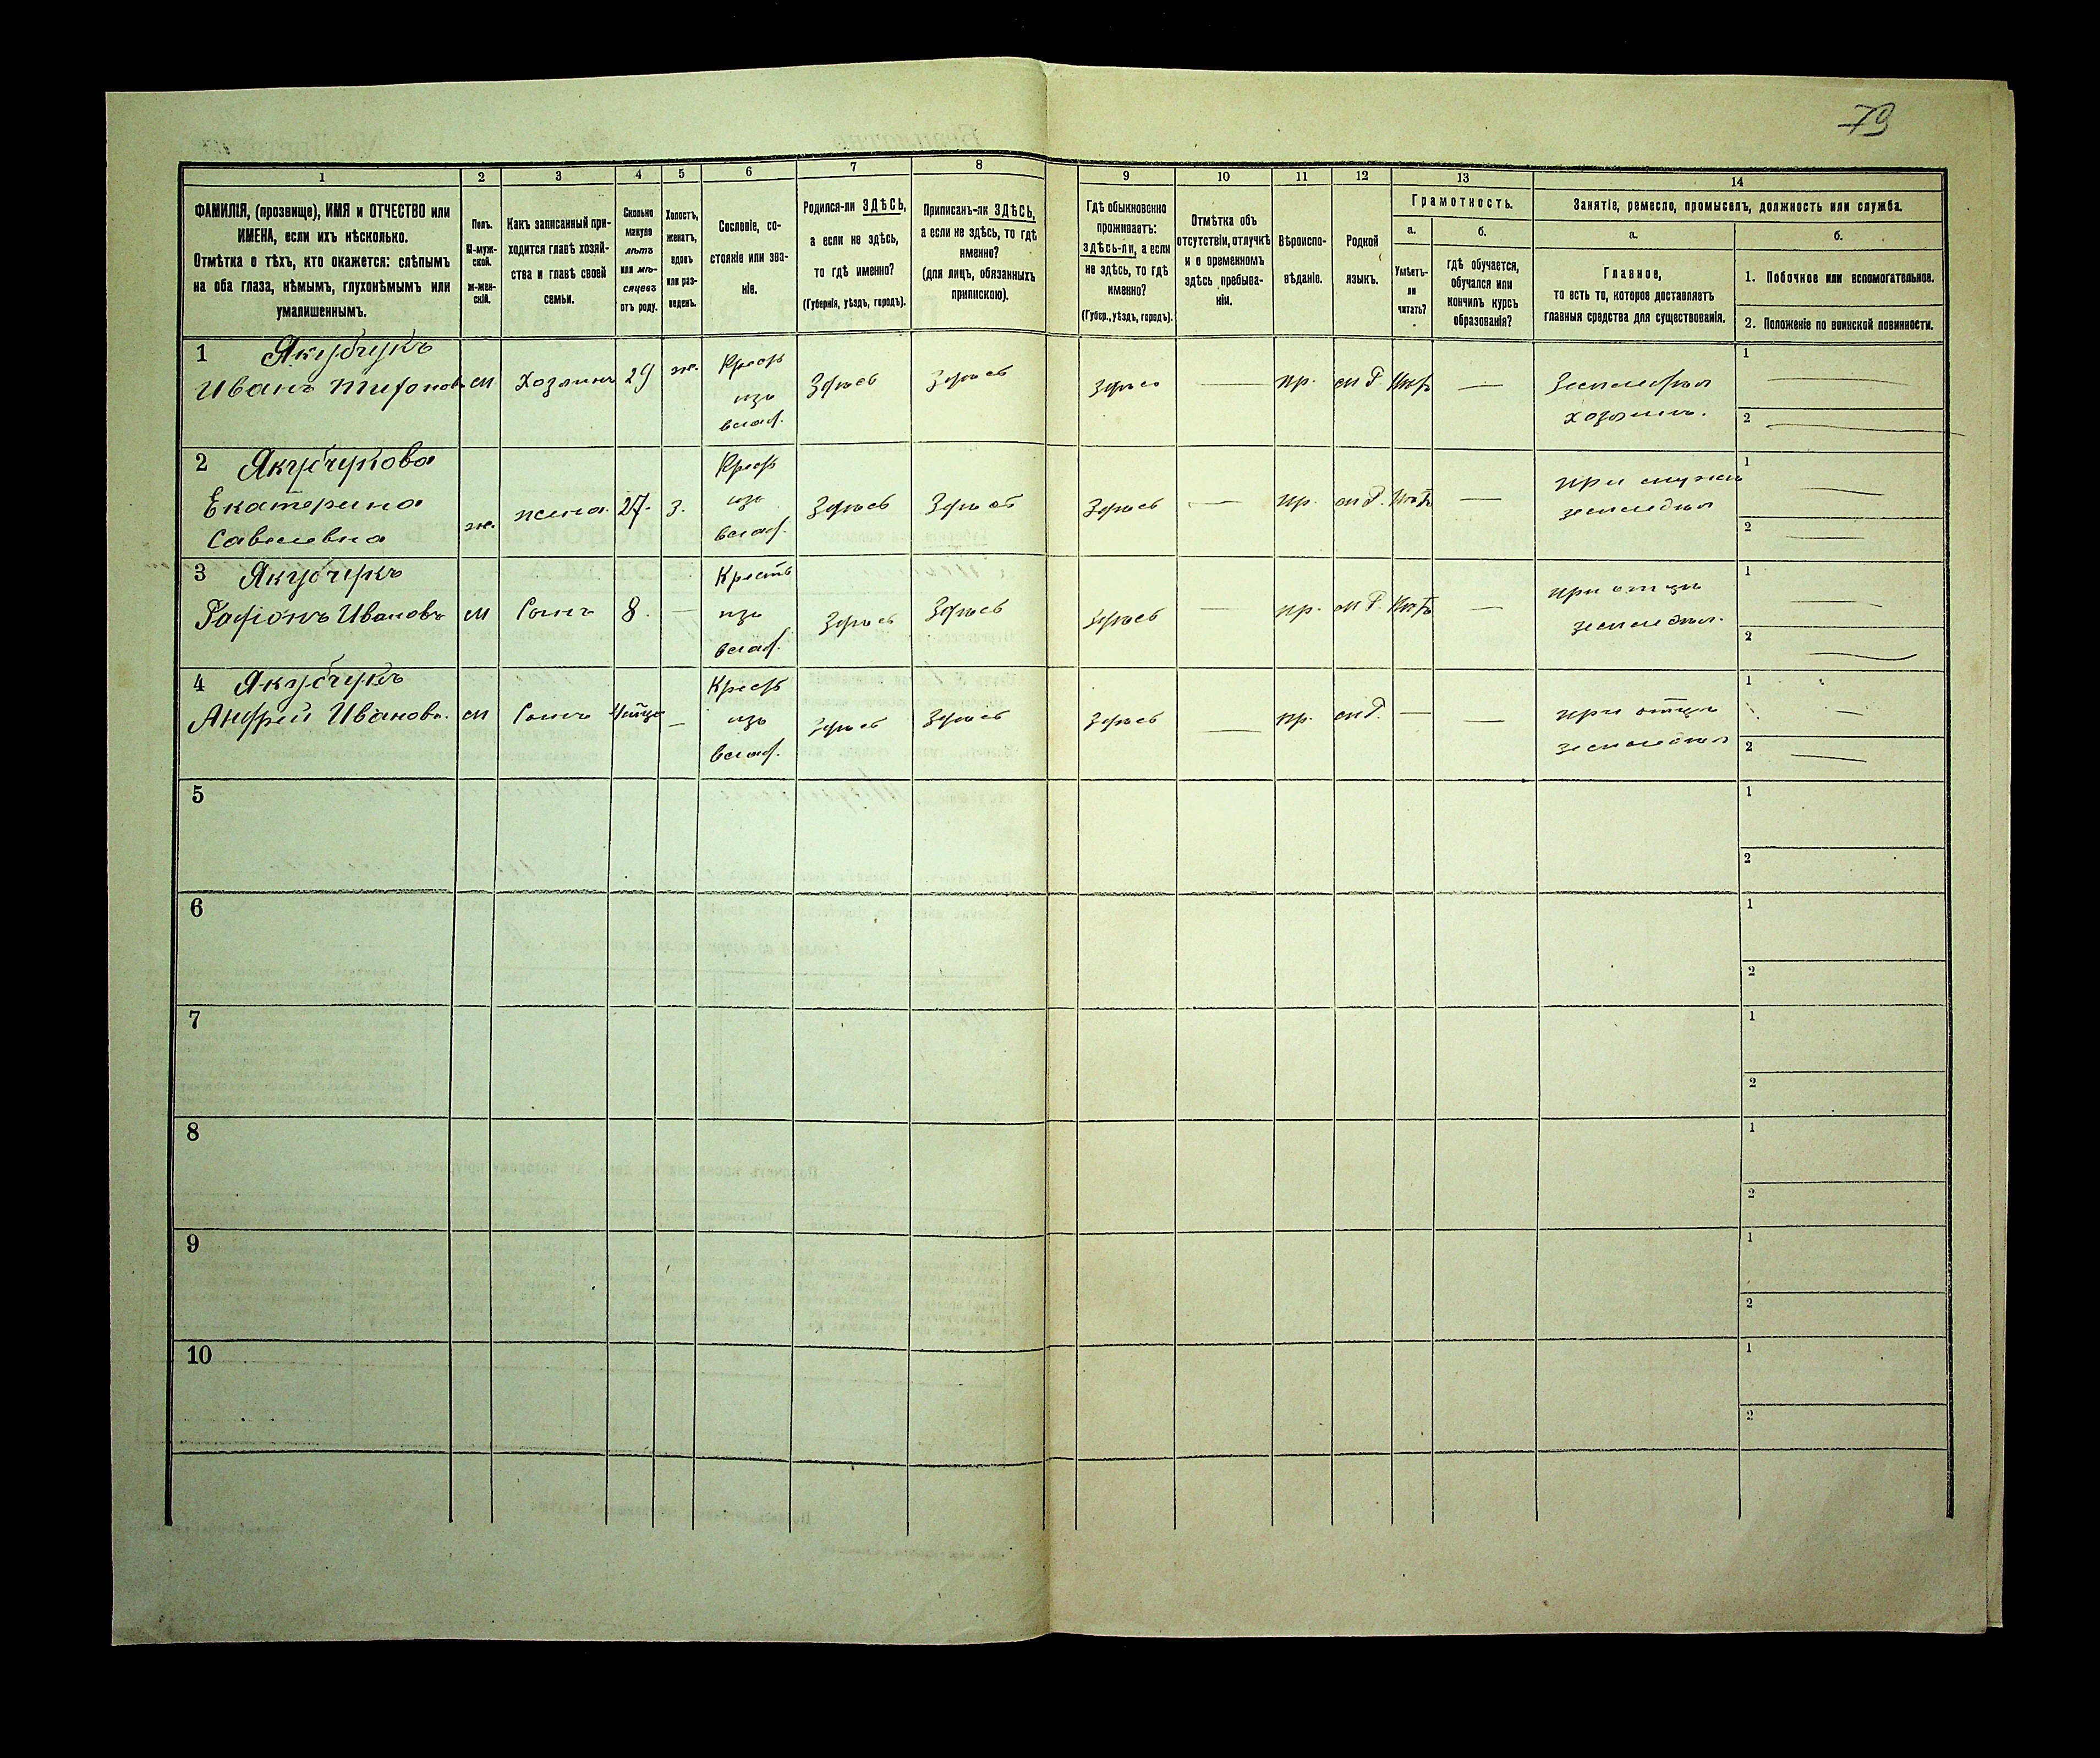 79
1 2 3 4 5 6 7 8 9 10 11 12 13 14
ФАМИЛІЯ, (прозвище), ИМЯ и ОТЧЕСТВО или
ИМЕНА, если ихъ нѣсколько.
Отмѣтка о тѣхъ, кто окажется: слѣпымъ
на оба глаза, нѣмымъ, глухонѣмымъ или
умалишеннымъ.
Полъ.
М-муж-
ской.
ж-жен-
скій.
Какъ записанный при-
ходится главѣ хозяй-
ства и главѣ своей
семьи.
Сколько
минуло
лѣтъ
или мѣ-
сяцевъ
отъ роду.
Холостъ,
женатъ,
вдовъ
или раз-
веденъ.
Сословіе, со-
стояніе или зва-
ніе.
Родился-ли ЗДѢСЬ,
а если не здѣсь,
то гдѣ именно?
(Губернія, уѣздъ, городъ).
Приписанъ-ли ЗДѢСЬ,
а если не здѣсь, то гдѣ
именно?
(для лицъ, обязанныхъ
припискою).
Гдѣ обыкновенно
проживаетъ:
ЗДѢСЬ-ли, а если
не здѣсь, то гдѣ
именно?
(Губер., уѣздъ, городъ).
Отмѣтка объ
отсутствіи, отлучкѣ
и о временномъ
здѣсь пребыва-
ніи.
Вѣроиспо-
вѣданіе.
Родной
языкъ.
Грамотность.
а.
Умѣетъ-
ли
читать?
б.
гдѣ обучается,
обучался или
кончилъ курсъ
образованія?
Занятіе, ремесло, промыселъ, должность или служба.
а.
Главное,
то есть то, которое доставляетъ
главныя средства для существованія.
б.
1. Побочное или вспомогательное.
2. Положеніе по воинской повинности.
1 Якубчукъ
Иванъ Тихонов м Хозяинъ 29 ж. Крест Здѣсь Здѣсь Здѣсь — пр. мР. Нѣтъ — Земледѣл 1 —
изъ
влад. хозяинъ. 2 —
2 Якубчукова Крест 1 —
Екатерина ж. жена 27. з. изъ Здѣсь Здѣсь Здѣсь — пр. мР. Нѣтъ — при мужѣ
Савелевна влад. земледѣл 2 —
3 Якубчукъ Кресть 1 —
Иванов м Сынъ 8. — изъ Здѣсь Здѣсь Здѣсь — пр. мР. Нѣтъ — при отцѣ
влад. земледѣл. 2 —
4 Якубчукъ Крест 1 —
Андрей Иванов. м Сынъ — изъ Здѣсь Здѣсь Здѣсь — пр. мР. — — при отцѣ
влад. земледѣл 2 —
5 1
2
6 1
2
7 1
2
8 1
2
9 1
2
10 1
2